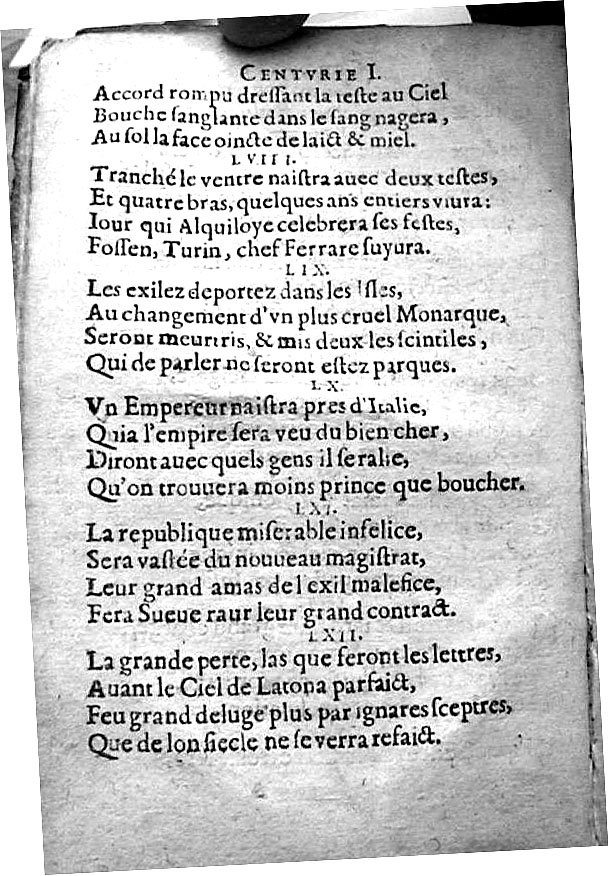 CENTVRIE I.
Accord rompu dreſſant la teſte au Ciel
Bouche ſanglante dans le ſang nagera,
Au ſol la face oincte de laict & miel.
LVIII.
Tranché le ventre naiſtra auec deux teſtes,
Et quatre bras, quelques ans entiers viura:
Iour qui Alquiloye celebrera ſes feſtes,
Foſſen, Turin, chef Ferrare ſuyura.
LIX.
Les exilez deportez dans les Iſles,
Au changement d'vn plus cruel Monarque,
Seront meurtris, & mis deux les ſcintiles,
Qui de parler ne ſeront eſtez parques.
LX.
Vn Empereur naiſtra pres d'Italie,
Qui a l'empire ſera veu du bien cher,
Diront auec quels gens il ſe ralie,
Qu'on trouuera moins prince que boucher.
LXI.
La republique miſerable infelice,
Sera vaſtée du nouueau magiſtrat,
Leur grand amas de l'exil malefice,
Fera Sueue raur leur grand contract.
LXII.
La grande perte, las que feront les lettres,
Auant le Ciel de Latona parfaict,
Feu grand deluge plus par ignares ſceptres,
Que de lon ſiecle ne ſe verra refaict.